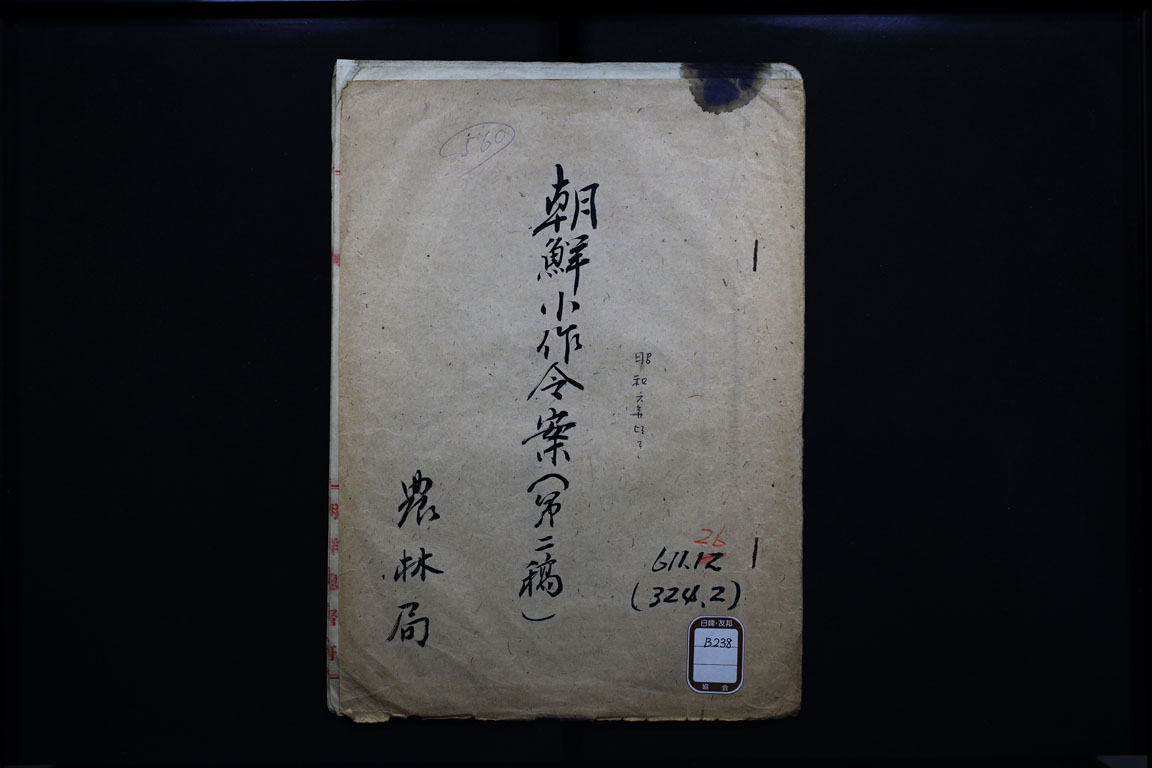 560
朝鮮小作令案(第二稿)
昭和六年
農林局
26
611.12
(324.2)
日韓・友邦
B238
協会
朝鮮總督府